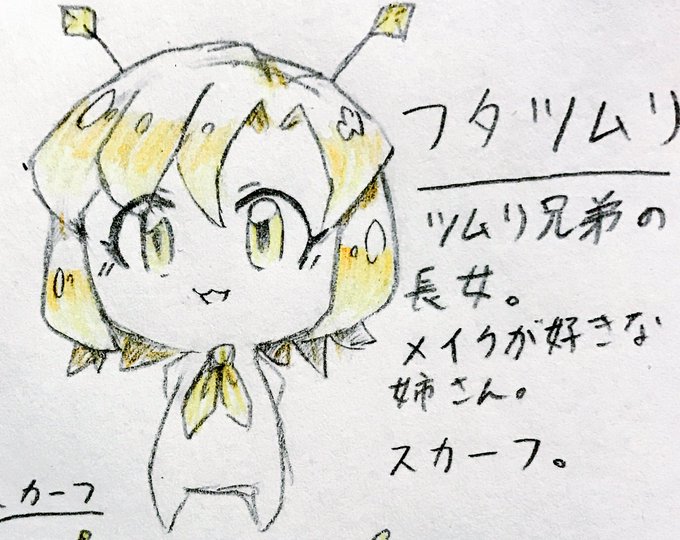 フタツムリ
ツムリ兄弟の
長女。
メイクが好きな
姉さん。
スカーフ。
カーフ